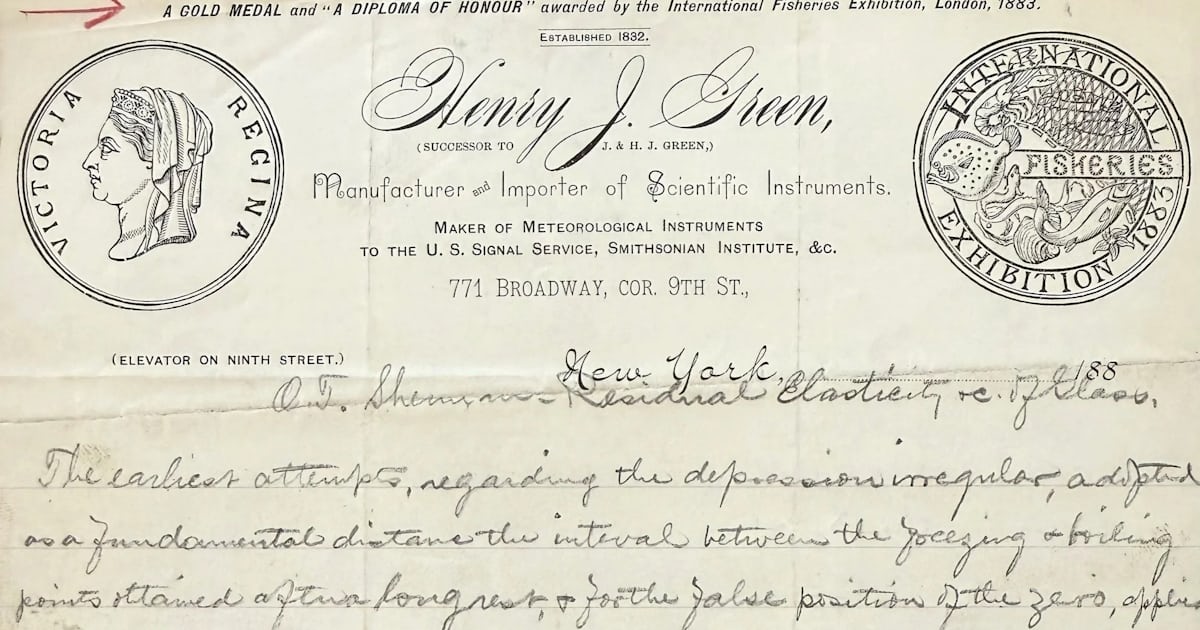 A GOLD MEDAL and "A DIPLOMA OF HONOUR" awarded by the International Fisheries Exhibition, London, 1883.
ESTABLISHED 1832.
Henry J. Green,
(SUCCESSOR TO J. & H. J. GREEN,)
Manufacturer and Importer of Scientific Instruments.
MAKER OF METEOROLOGICAL INSTRUMENTS
TO THE U. S. SIGNAL SERVICE, SMITHSONIAN INSTITUTE, &C.
771 BROADWAY, COR. 9TH ST.,
VICTORIA REGINA
INTERNATIONAL
FISHERIES
EXHIBITION 1883
(ELEVATOR ON NINTH STREET.)
New York, 188
O.T. Sherman - Residual Elasticity &c. of Glass.
The earliest attempts, regarding the depression irregular, adopted
as a fundamental distance the interval between the freezing & boiling
points obtained after a long rest, & for the false position of the zero, applie